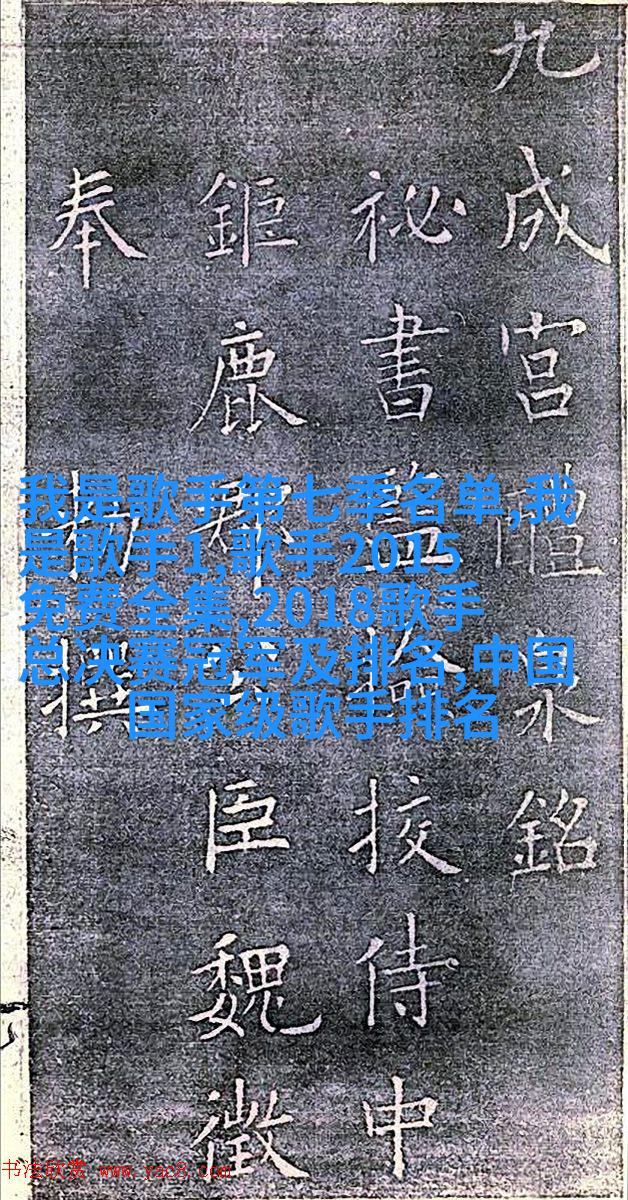 九成宮醴泉銘
祕書監檢挍侍中
鉅鹿郡公臣魏徵
奉勑撰
我是歌手第七季名单,我
是歌手1,歌手2015
免费全集,2018歌手
总决赛冠军及排名,中国
国家级歌手排名
书法欣赏 www.yac8.com